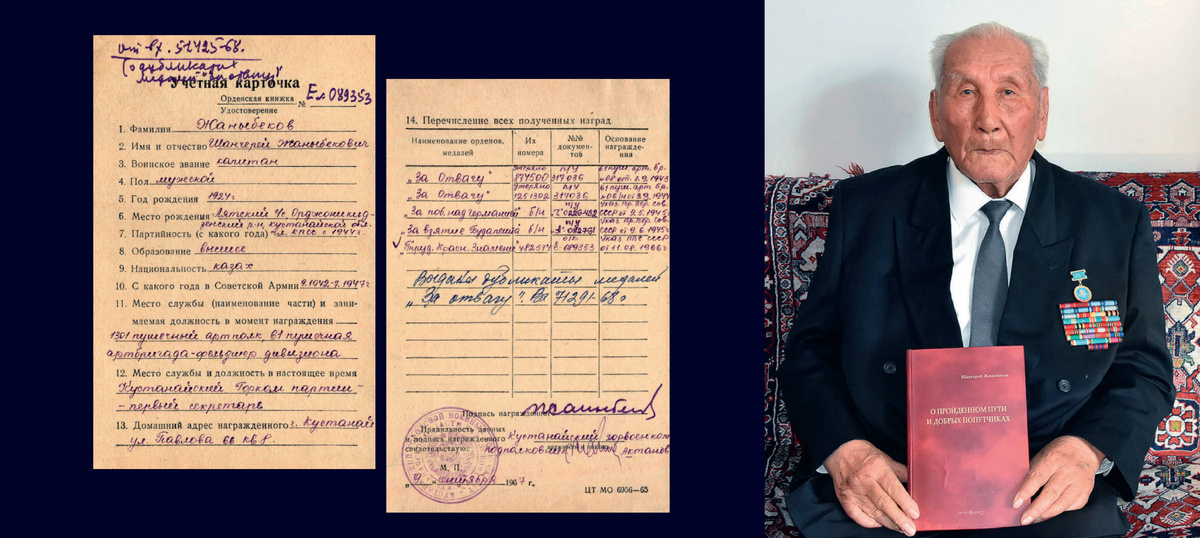 от вх. 51425-68.
(о дубликатах
медалей "За отвагу")
Учётная карточка
Орденская книжка
Удостоверение № Ел 089353
1. Фамилия Жаныбеков
2. Имя и отчество Шангерей Жаныбекович
3. Воинское звание капитан
4. Пол мужской
5. Год рождения 1924 г.
6. Место рождения Аятский с/с. Орджоникид-
зевский р-н, Кустанайской обл.
7. Партийность (с какого года) чл. КПСС с 1944 г.
8. Образование высшее
9. Национальность казах
10. С какого года в Советской Армии 9.1942-г. 1947 г.
11. Место службы (наименование части) и зани-
маемая должность в момент награждения
1301 пушечный артполк, 61 пушечная
артбригада-фельдшер дивизиона
12. Место службы и должность в настоящее время
Кустанайский Горком партии-
- первый секретарь
13. Домашний адрес награжденного г. Кустанай
ул. Павлова 66 кв 8.
14. Перечисление всех полученных наград
Наименование орденов, медалей Их номера №№ документов Основание награждения
„За Отвагу" утеряно 874500 п/у 317036 61 пуш. арт. бр.
„За Отвагу" утеряно 1251302 п/у 317036 61 пуш. арт. бр.
„За поб. над Германией" б/н 0226432 Указ. пр. вер. сов. СССР от 9.5.1945 г.
„За взятие Будапешта" б/н А-082731 Указ. през. вер. сов. СССР от 9.6.1945 г.
✓ „Труд. Красн. Знамени" 482574 Е-089353 Указ ПВС СССР от 11.08.1966 г.
Выданы дубликаты медалей
„За отвагу". Вх 71291-68 г
Подпись награжденного
Правильность данных
и подпись награжденного Кустанайский горвоенком
свидетельствую: подполковник Актанов
М. П.
9 сентября 1967 г.
ЦТ МО 6956—65
Шангерей Жаныбеков
О ПРОЙДЕННОМ ПУТИ
И ДОБРЫХ ПОПУТЧИКАХ